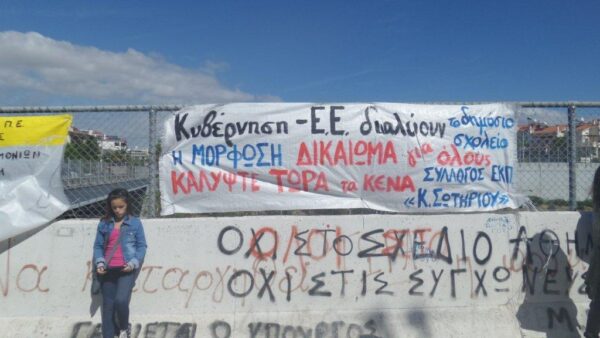 Π Ε
Σ
ΜΟΝΙΩΝ
Μ
Κυβέρνηση - Ε.Ε. διαλύουν το δημόσιο σχολείο
Η ΜΟΡΦΩΣΗ ΔΙΚΑΙΩΜΑ για όλους
ΚΑΛΥΨΤΕ ΤΩΡΑ τα ΚΕΝΑ
ΣΥΛΛΟΓΟΣ ΕΚΠ
«Κ. ΣΩΤΗΡΙΟΥ»
ΟΧΙ ΣΤΟ ΣΧΕΔΙΟ ΑΘΗ
ΟΧΙ ΣΤΙΣ ΣΥΓΧΩΝΕΥΣ
Να καταργηθεί
ΟΛΟΙ
Ο ΥΠΟΥΡΓΟΣ
Μ